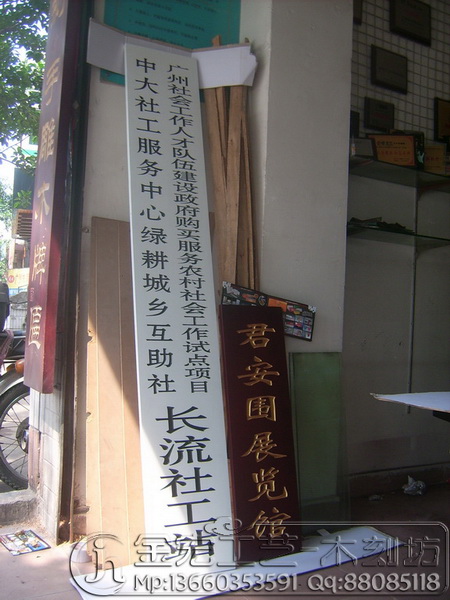 广州社会工作人才队伍建设政府购买服务农村社会工作试点项目
中大社工服务中心绿耕城乡互助社
长流社工站
君安围展览馆
手雕木牌匾
金艺工艺木刻坊
Mp:13660353591 QQ:88085118